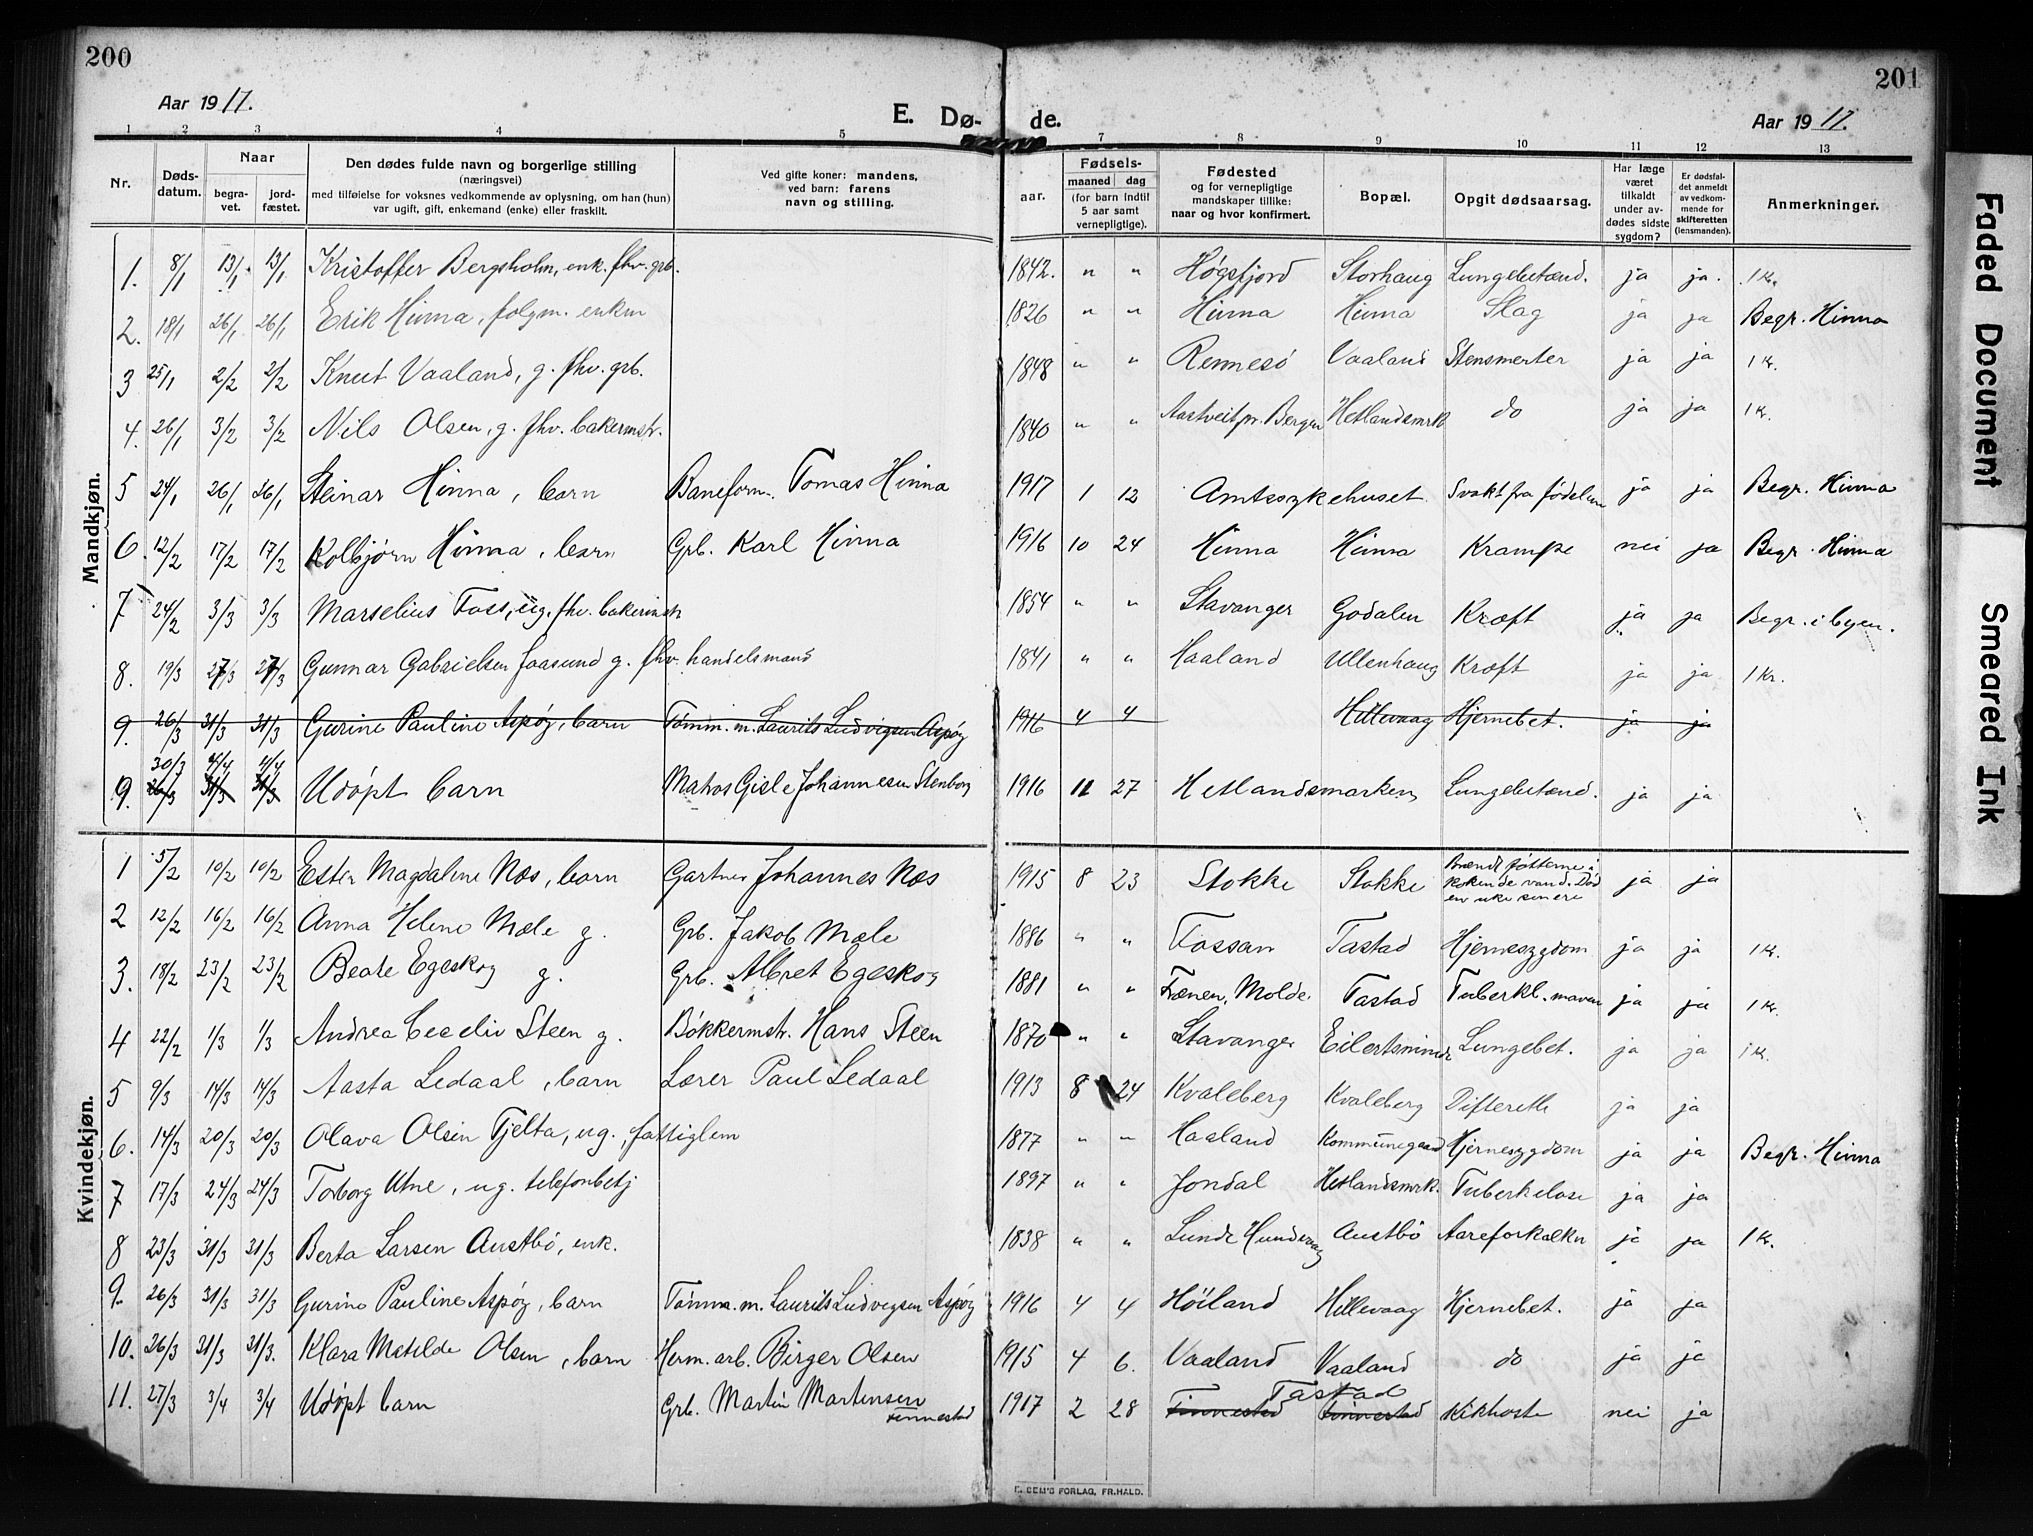 200
201
Aar 1917.
E. Dø-
de.
Aar 1917.
1 2 3 4 5 7 8 9 10 11 12 13
Nr.
Døds-datum.
Naar
begra-vet.
jord-fæstet.
Den dødes fulde navn og borgerlige stilling
(næringsvei)
med tilføielse for voksnes vedkommende av oplysning, om han (hun)
var ugift, gift, enkemand (enke) eller fraskilt.
Ved gifte koner: mandens,
ved barn: farens
navn og stilling.
Fødsels-
aar.
maaned dag
(for barn indtil
5 aar samt
vernepligtige).
Fødested
og for vernepligtige
mandskaper tillike:
naar og hvor konfirmert.
Bopæl.
Opgit dødsaarsag.
Har læge
været
tilkaldt
under av-
dødes sidste
sygdom?
Er dødsfal-
det anmeldt
av vedkom-
mende for
skifteretten
(lensmanden).
Anmerkninger.
Mandkjøn.
1. 8/1 13/1 13/1 Kristoffer Bergsholm, enk. fhv. grb. 1842. " " Høgsfjord Storhaug Lungebetænd. ja ja. 1 Kr.
2. 18/1 26/1 26/1 Erik Hinna, folgm. enkm 1826 " " Hinna Hinna Slag ja ja Begr. Hinna
3 25/1 2/2 2/2 Knut Vaaland, g. fhv. grb. 1848 " " Rennesø Vaaland Stensmerter ja ja 1 Kr.
4. 26/1 3/2 3/2 Nils Olsen, g. fhv. bakermstr. 1840 " " Aastveit pr. Bergen Hetlandsmrk do ja ja 1 Kr.
5 24/1 26/1 26/1 Steinar Hinna, barn Baneform. Tomas Hinna 1917 1 12 Amtssykehuset Svakt fra fødelsen ja ja Begr. Hinna
6. 12/2 17/2 17/2 Kolbjørn Hinna, barn Grb. Karl Hinna 1916 10 24 Hinna Hinna Krampe nei ja Begr. Hinna
7 24/2 3/3 3/3 Marselius Foss, ug. fhv. bakermstr 1854 " " Stavanger Godalen Kræft ja ja Begr. i byen.
8. 19/3 27/3 27/3 Gunnar Gabrielsen Jaasund g. fhv. handelsmand 1841 " " Haaland Ullenhaug Kræft ja ja 1 Kr.
9. 26/3 31/3 31/3 Gurine Pauline Aspøy, barn Tømm. m. Laurits Ludvigsen Aspøy 1916 4 4 Hillevaag Hjernebet. ja ja
30/3 4/4 4/4
9. 26/3 31/3 31/3 Udøpt barn Matros Gisle Johannesen Stenberg 1916 11 27 Hetlandsmarken Lungebetænd. ja ja
Kvindekjøn.
1 5/2 10/2 10/2 Ester Magdalene Næs, barn Gartner Johannes Næs 1915 8 23 Stokke Stokke Brændt føtterne i kokende vand. Død en uke senere ja ja
2 12/2 16/2 16/2 Anna Helene Mæle g. Grb. Jakob Mæle 1886 " " Fossan Tastad Hjernesygdom ja ja 1 Kr.
3. 18/2 23/2 23/2 Beate Egeskog g. Grb. Albret Egeskog 1881 " " Frænen, Molde Tastad Tuberkl. maven ja ja 1 Kr.
4 22/2 1/3 1/3 Andrea Cecelie Steen g. Bøkkermstr. Hans Steen 1870 " " Stavanger Eilertsminde Lungebet. ja ja 1 Kr.
5 9/3 14/3 14/3 Aasta Ledaal, barn Lærer Paul Ledaal 1913 8 24 Kvaleberg Kvaleberg Difterett ja ja
6. 14/3 20/3 20/3 Olava Olsen Tjelta, ug., fattiglem 1877 " " Haaland Kommunegaard Hjernesygdom ja ja Begr. Hinna
7 17/3 24/3 24/3 Torborg Utne, ug. telefonbetj 1897 " " Jondal Hetlandsmrk. Tuberkelose ja ja
8 23/3 31/3 31/3 Berta Larsen Austbø, enk. 1838 " " Lunde Hundvaag Austbø Aareforkalkn ja ja 1 Kr.
9. 26/3 31/3 31/3 Gurine Pauline Aspøy, barn Tømm. m. Laurits Ludvigsen Aspøy 1916 4 4 Høiland Hillevaag Hjernebet. ja ja
10. 26/3 31/3 31/3. Klara Matilde Olsen, barn Herm. arb. Birger Olsen 1915 4 6. Vaaland Vaaland do ja ja
11. 27/3 3/4 3/4 Udøpt barn Grb. Martin Martensen Finnestad 1917 2 28 Finnestad Finnestad Tastad Kikhoste nei ja
E. SEM'S FORLAG, FR.HALD.
Faded Document
Smeared Ink